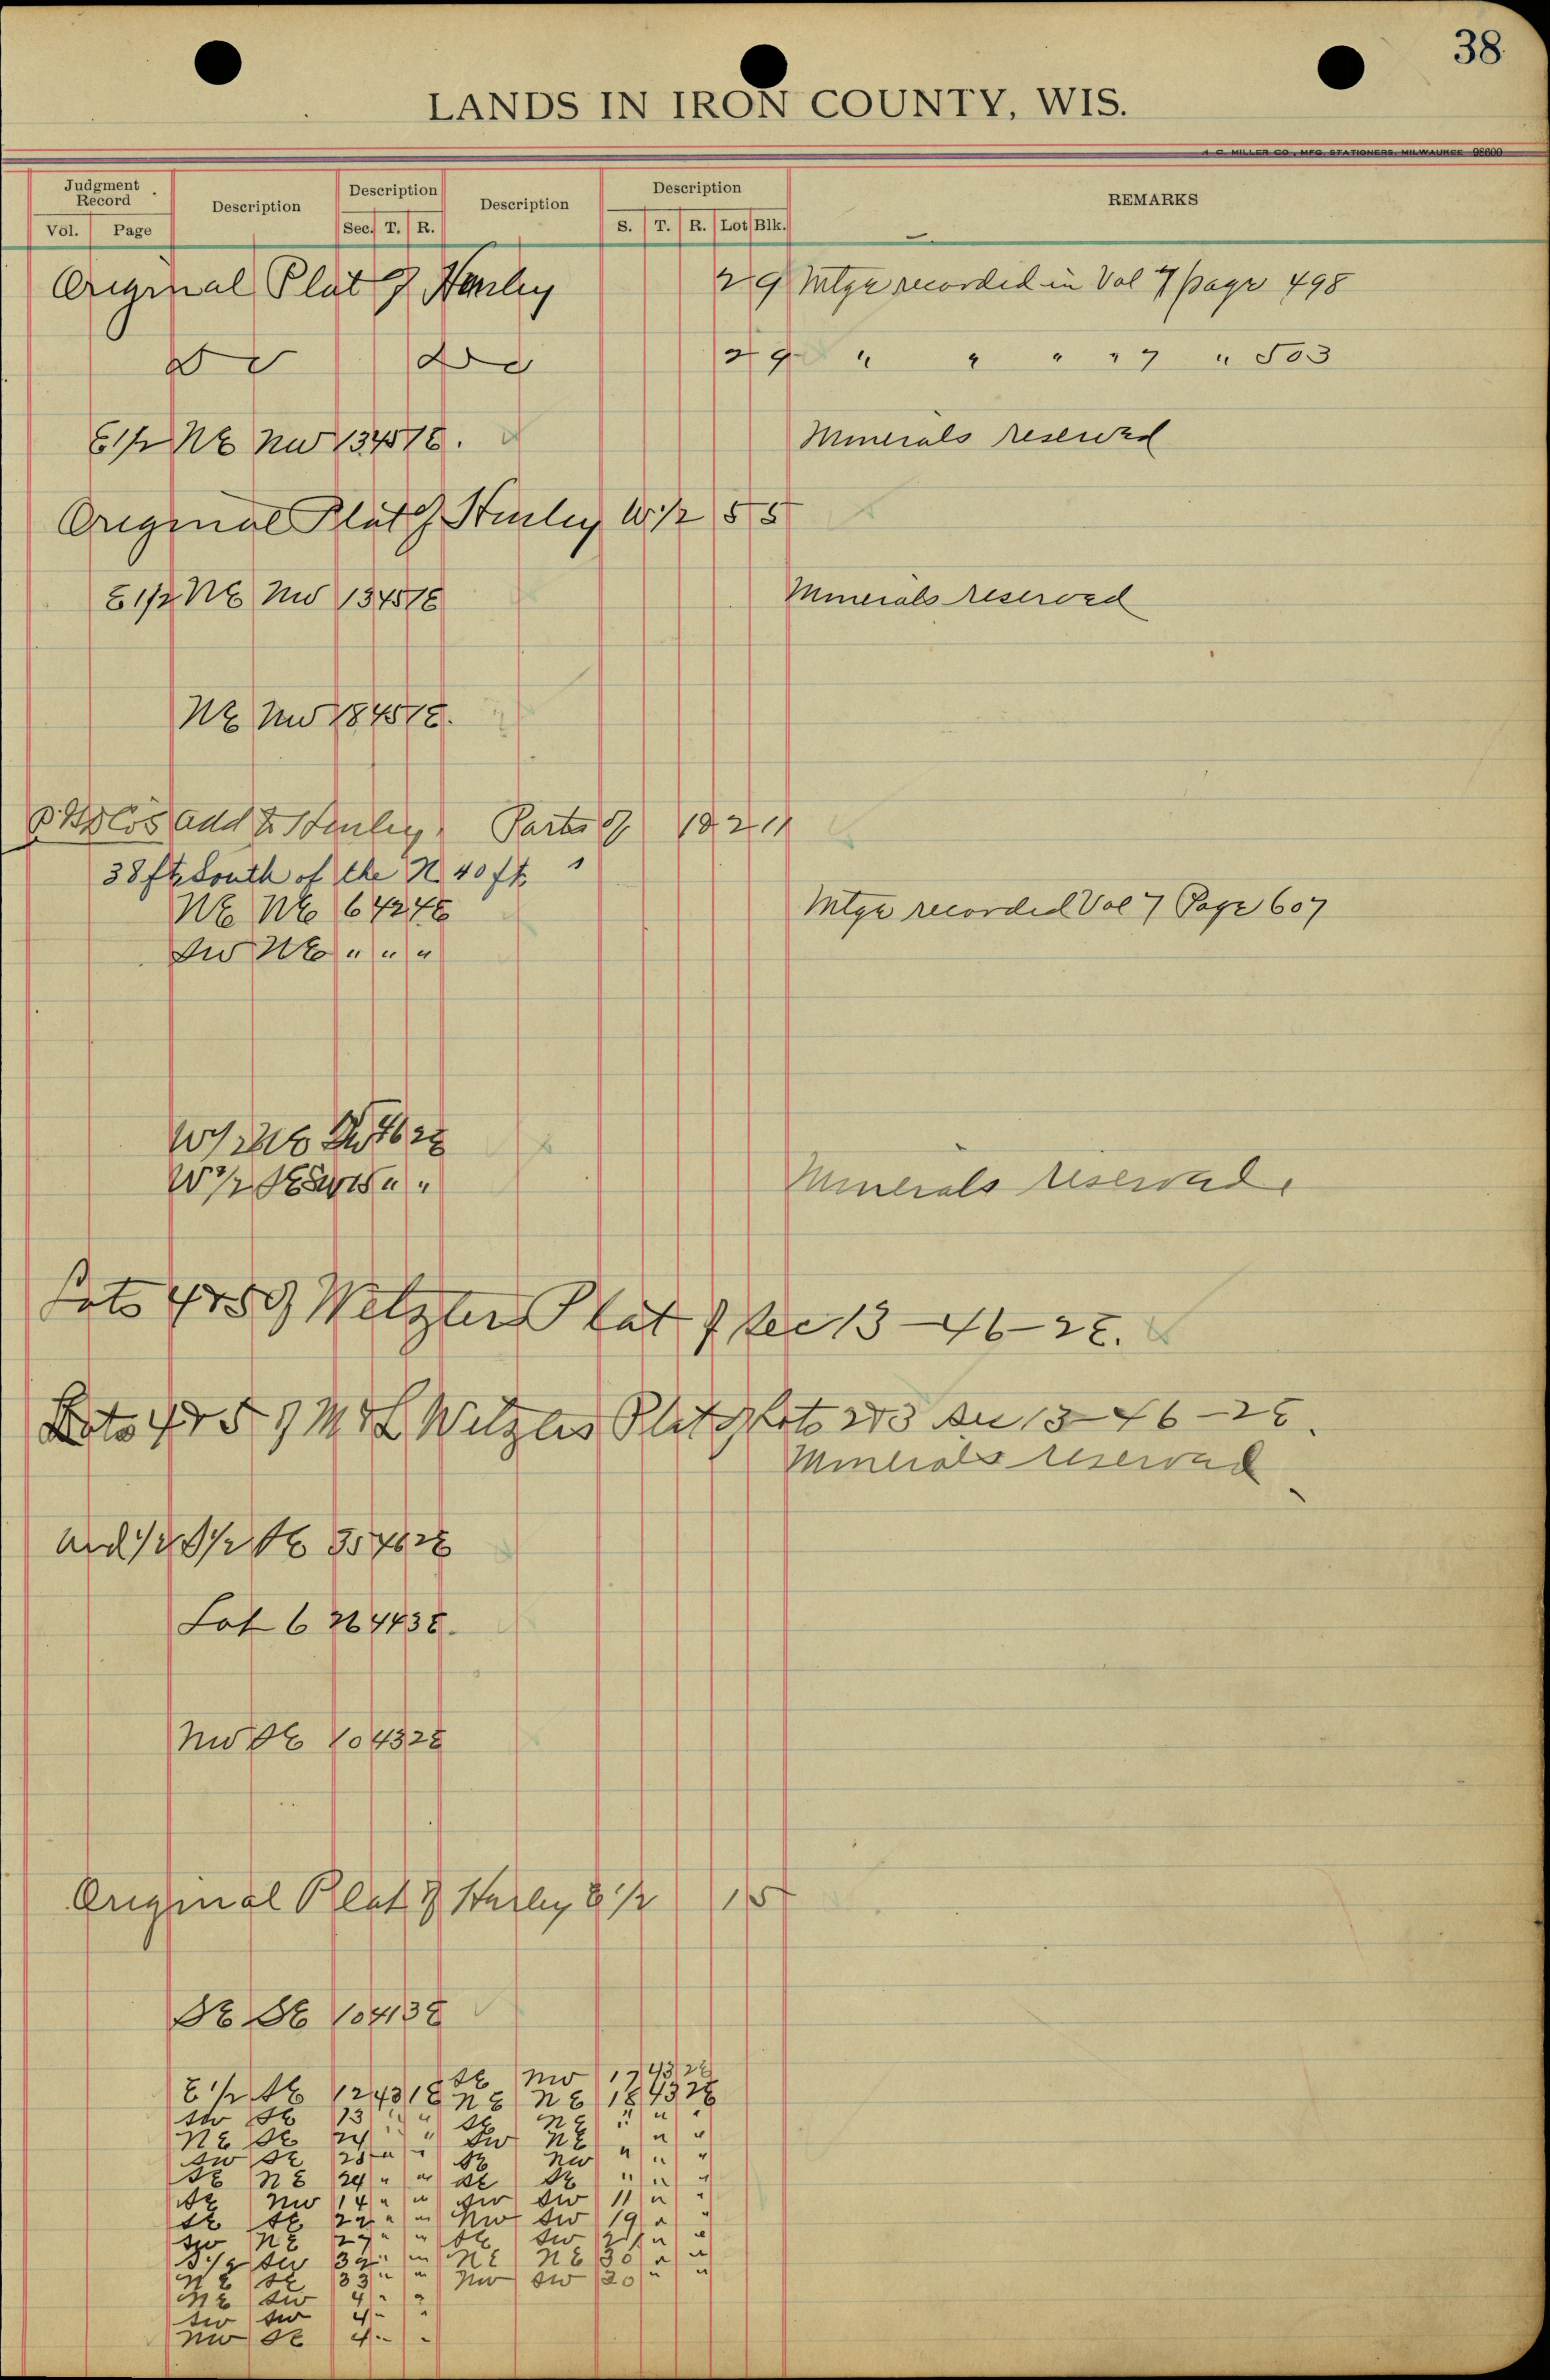 38
LANDS IN IRON COUNTY, WIS.
H. C. MILLER CO., MFG. STATIONERS, MILWAUKEE 96600
Judgment Record Description Description Description Description REMARKS
Vol. Page Sec. T. R. S. T. R. Lot Blk.
Original Plat of Hurley 2 9 Mtge recorded in Vol 7 page 498
Do Do 2 9 " " " " 7 " 503
E 1/2 NE NW 13 45 1E. Minerals reserved
Original Plat of Hurley W 1/2 5 5
E 1/2 NE NW 13 45 1E Minerals reserved
NE NW 18 45 1E.
Add to Hurley. Parts of 1 & 2 11
38 ft South of the N. 40 ft. "
NE NE 6 42 4E Mtge recorded Vol 7 Page 607
SW NE " " "
W 1/2 NE SW 46 2E
W 1/2 SE SW 15 " " Minerals reserved.
Lots 4 & 5 of Wetzlers Plat of Sec 13-46-2E.
Lots 4 & 5 of M & L Wetzlers Plat of Lots 2 & 3 Sec 13-46-2E.
Minerals reserved
Und 1/2 S 1/2 SE 35 46 2E
Lot 6 26 44 3E.
NW SE 10 43 2E
Original Plat of Hurley E 1/2 1 5
SE SE 10 41 3E
E 1/2 SE 12 43 1E SE NW 17 43 2E
SW SE 13 " " NE NE 18 43 2E
NE SE 24 " " SE NE " " "
SW SE 23 " " SW NE " "
SE NE 24 " " SE NW " " "
SE NW 14 " " SE SE " " "
SE SE 22 " " SW SW 11 " "
SW NE 27 " " NW SW 19 " "
S 1/2 SW 32 " " SE SW 21 " "
NE SE 33 " " NE NE 30 " "
NE SW 4 " " NW SW 20 " "
SW SW 4 " "
NW SE 4 " "